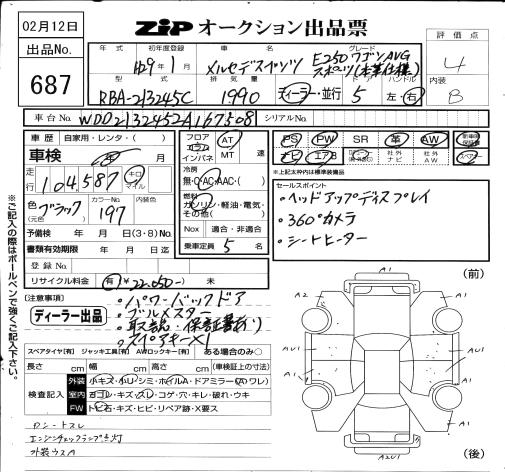 02月12日
ZiP オークション出品票
出品No.
687
評価点
4
内装
B
年式
初年度登録
車名
グレード
H29年1月
メルセデスベンツ
E250ワゴンAVG
スポーツ(本革仕様)
型式
排気量
ハンドル
RBA-213245C
1990
ディーラー・並行
5
左・右
車台No.
WDD2132452A167508
シリアルNo.
車歴
自家用・レンタ・( )
車検
月
走行
104,587
キロ
マイル
色
(元色)
ブラック
カラーNo.
197
内装色
予備検 年 月 日(3・8)No.
書類有効期限 年 月 日迄
登録No.
リサイクル料金
有(¥22,050-) 未
フロア
コラム
インパネ
AT
MT
速
冷房
無・AC・AAC・( )
燃料
ガソリン・軽油・電気・
その他( )
Nox 適合・非適合
乗車定員 5 名
PS PW SR 革 AW
新車時保証書
ナビ
社外
AW
※上記太枠内は標準装備品
セールスポイント
・ヘッドアップディスプレイ
・360°カメラ
・シートヒーター
(注意事項)
ディーラー出品
・パワーバックドア
・ブルメスター
・取説・保証書有り
・スペアキー×1
スペアタイヤ[有] ジャッキ工具[有] AWロックキー[有] ある場合のみ○
長さ cm 幅 cm 高さ cm (車検証上の寸法)
検査記入
外装
小キズ・小リ・シミ・ホイルA・ドアミラー(A・ワレ)
室内
ヨゴレ・キズ・スレ・コゲ・穴・キレ・破れ・ウキ
FW
トビ石・キズ・ヒビ・リペア跡・X要ス
エンジンチェックランプ点灯
外装ウスA
(前)
(後)
A1
A2
A1
AU1
AU1
A1
A1
A2U1
※ご記入の際はボールペンで強くご記入下さい。